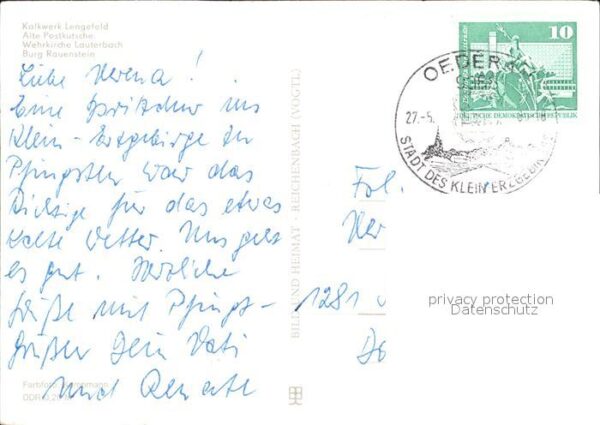 Kalkwerk Lengefeld
Alte Postkutsche
Wehrkirche Lauterbach
Burg Rauenstein
Liebe Verena!
Eine Spritztour ins
Klein-Erzgebirge zu
Pfingsten war das
Richtige für das etwas
kalte Wetter. Uns geht
es gut. Herzliche
Grüße mit Pfingst-
grüßen Dein Vati
und Renate
Farbfoto:
DDR
BILD UND HEIMAT · REICHENBACH (VOGTL)
10
DEUTSCHE DEMOKRATISCHE REPUBLIK
OEDERAN
27.-5.
STADT DES KLEINERZGEBIRGE
Frl.
Ver
1281
privacy protection
Datenschutz